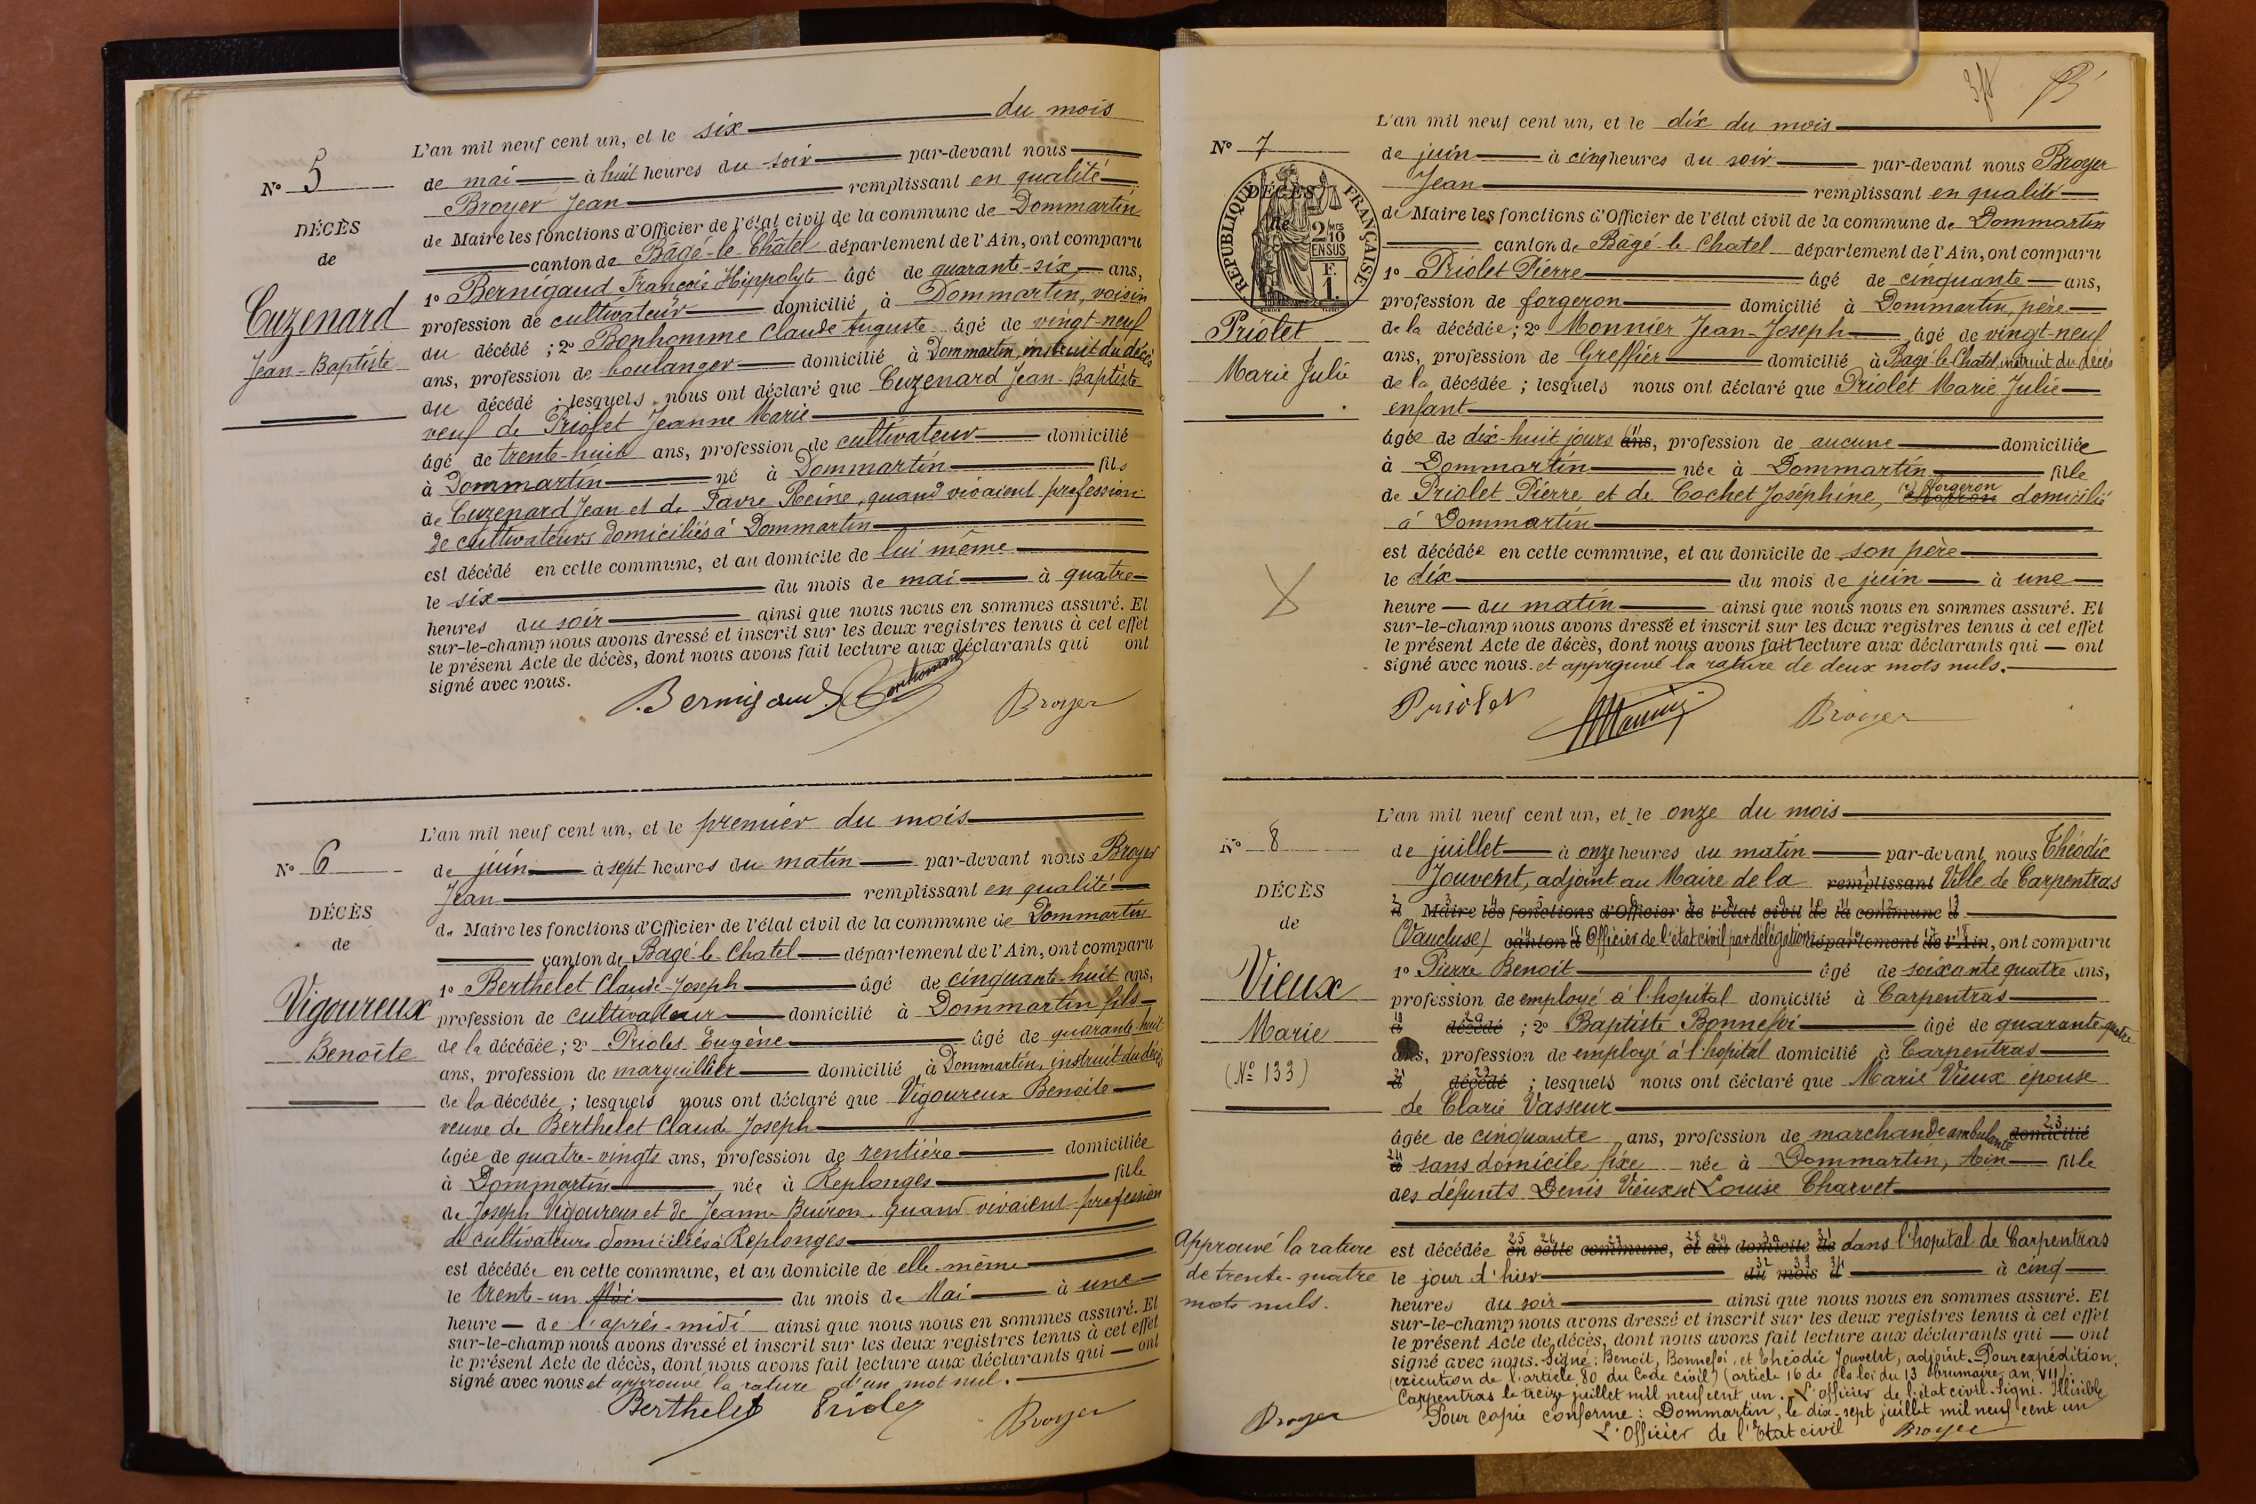 L'an mil neuf cent un, et le six du mois
de mai à huit heures du soir par-devant nous
Broyer Jean remplissant en qualité
de Maire les fonctions d'Officier de l'état civil de la commune de Dommartin
canton de Bâgé-le-Châtel département de l'Ain, ont comparu
1º Bernigaud François Hippolyte âgé de quarante-six ans,
profession de cultivateur domicilié à Dommartin, voisin
du décédé ; 2º Bonhomme Claude Auguste âgé de vingt-neuf
ans, profession de boulanger domicilié à Dommartin, instruit du décès
du décédé ; lesquels nous ont déclaré que Cuzenard Jean-Baptiste
veuf de Priolet Jeanne Marie
âgé de trente-huit ans, profession de cultivateur domicilié
à Dommartin né à Dommartin fils
de Cuzenard Jean et de Favre Reine, quand vivaient profession
de cultivateurs domiciliés à Dommartin
est décédé en cette commune, et au domicile de lui même
le six du mois de mai à quatre
heures du soir ainsi que nous nous en sommes assuré. Et
sur-le-champ nous avons dressé et inscrit sur les deux registres tenus à cet effet
le présent Acte de décès, dont nous avons fait lecture aux déclarants qui ont
signé avec nous.
Bernigaud Bonhomme Broyer
Nº 5
DÉCÈS
de
Cuzenard
Jean-Baptiste
L'an mil neuf cent un, et le premier du mois
de juin à sept heures du matin par-devant nous Broyer
Jean remplissant en qualité
de Maire les fonctions d'Officier de l'état civil de la commune de Dommartin
canton de Bagé-le-Chatel département de l'Ain, ont comparu
1º Berthelet Claude-Joseph âgé de cinquante-huit ans,
profession de cultivateur domicilié à Dommartin fils
de la décédée ; 2º Priolet Eugène âgé de quarante-huit
ans, profession de marguillier domicilié à Dommartin, instruit du décès
de la décédée ; lesquels nous ont déclaré que Vigoureux Benoîte
veuve de Berthelet Claude Joseph
âgée de quatre-vingts ans, profession de rentière domiciliée
à Dommartin née à Replonges fille
de Joseph Vigoureux et de Jeanne Buiron. Quand vivaient profession
de cultivateurs domiciliés à Replonges
est décédée en cette commune, et au domicile de elle-même
le trente-un Mai du mois de Mai à une
heure de l'après-midi ainsi que nous nous en sommes assuré. Et
sur-le-champ nous avons dressé et inscrit sur les deux registres tenus à cet effet
le présent Acte de décès, dont nous avons fait lecture aux déclarants qui ont
signé avec nous et approuvé la rature d'un mot nul.
Berthelet Priolet Broyer
Nº 6
DÉCÈS
de
Vigoureux
Benoîte
L'an mil neuf cent un, et le dix du mois
de juin à cinq heures du soir par-devant nous Broyer
Jean remplissant en qualité
de Maire les fonctions d'Officier de l'état civil de la commune de Dommartin
canton de Bâgé-le-Chatel département de l'Ain, ont comparu
1º Priolet Pierre âgé de cinquante ans,
profession de forgeron domicilié à Dommartin, père
de la décédée ; 2º Monnier Jean-Joseph âgé de vingt-neuf
ans, profession de Greffier domicilié à Bagé-le-Chatel, instruit du décès
de la décédée ; lesquels nous ont déclaré que Priolet Marie Julie
enfant
âgée de dix-huit jours ans, profession de aucune domiciliée
à Dommartin née à Dommartin fille
de Priolet Pierre et de Cochet Joséphine, forgeron domicilié
à Dommartin
est décédée en cette commune, et au domicile de son père
le dix du mois de juin à une
heure du matin ainsi que nous nous en sommes assuré. Et
sur-le-champ nous avons dressé et inscrit sur les deux registres tenus à cet effet
le présent Acte de décès, dont nous avons fait lecture aux déclarants qui ont
signé avec nous. et approuvé la rature de deux mots nuls.
Priolet Monnier Broyer
Nº 7
DÉCÈS
de
RÉPUBLIQUE FRANÇAISE
2/10 EN SUS
F. 1.
Priolet
Marie Julie
L'an mil neuf cent un, et le onze du mois
de juillet à onze heures du matin par-devant nous Théodic
Jouvent, adjoint au Maire de la remplissant Ville de Carpentras
Maire les fonctions d'Officier de l'état civil de la commune d
(Vaucluse) canton d Officier de l'état civil par délégation département de l'Ain, ont comparu
1º Pierre Benoit âgé de soixante quatre ans,
profession de employé à l'hopital domicilié à Carpentras
d décédé ; 2º Baptiste Bonnefoi âgé de quarante-quatre
ans, profession de employé à l'hopital domicilié à Carpentras
d décédé ; lesquels nous ont déclaré que Marie Vieux épouse
de Clarie Vasseur
âgée de cinquante ans, profession de marchande ambulante domicilié
à sans domicile fixe née à Dommartin, Ain fille
des défunts Denis Vieux et Louise Charvet
est décédée en cette commune, et au domicile de dans l'hopital de Carpentras
le jour d'hier du mois d à cinq
heures du soir ainsi que nous nous en sommes assuré. Et
sur-le-champ nous avons dressé et inscrit sur les deux registres tenus à cet effet
le présent Acte de décès, dont nous avons fait lecture aux déclarants qui ont
signé avec nous. Signé : Benoit, Bonnefoi, et Théodic Jouvent, adjoint. Pour expédition,
(exécution de l'article 80 du Code Civil) (article 16 de la loi du 13 brumaire, an VII).
Carpentras le treize juillet mil neuf cent un. L'officier de l'état civil. Signé. Illisible
Pour copie conforme : Dommartin, le dix-sept juillet mil neuf cent un
L'Officier de l'Etat civil Broyer
Nº 8
DÉCÈS
de
Vieux
Marie
(Nº 133)
Approuvé la rature
de trente-quatre
mots nuls.
Broyer